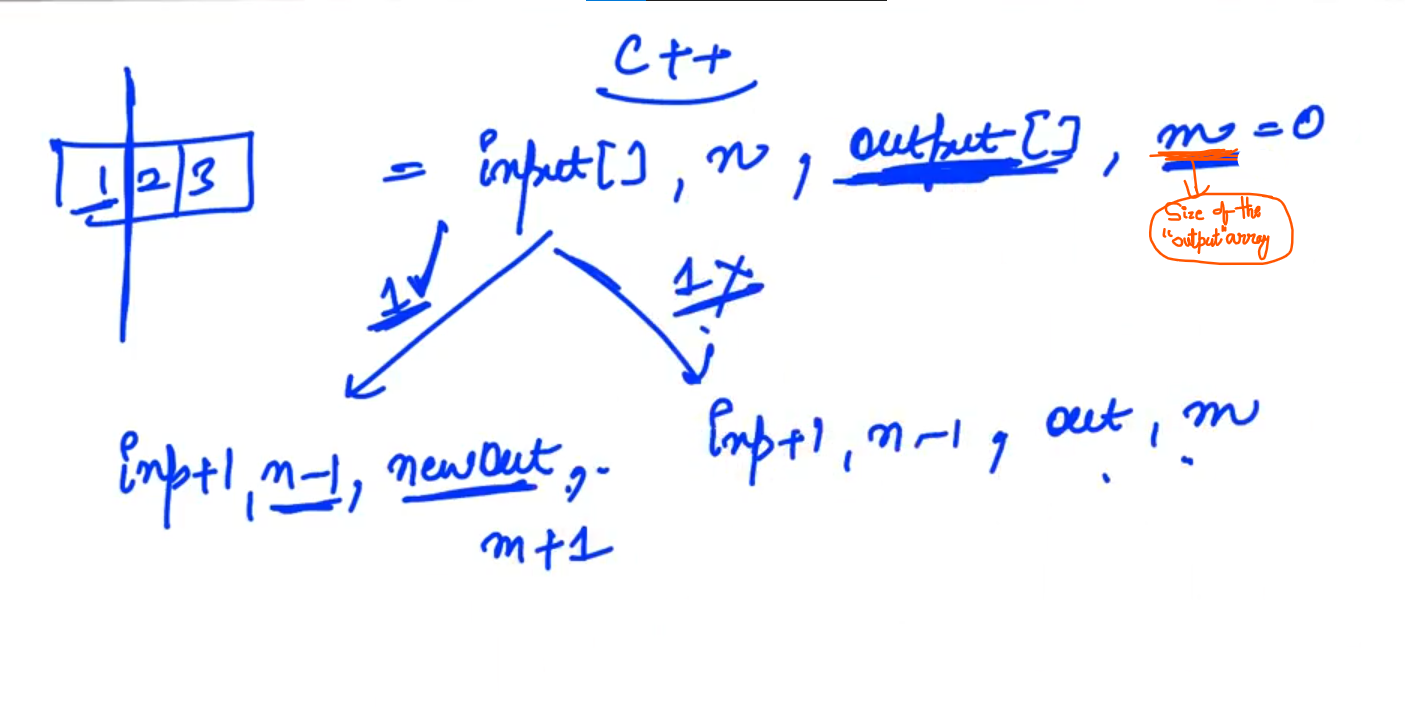 C++
1 2 3 = input[], n, output[], m = 0
Size of the
"output" array
1 ✓ 1 ✗
inp+1, n-1, newOut,
m+1
inp+1, n-1, out, m